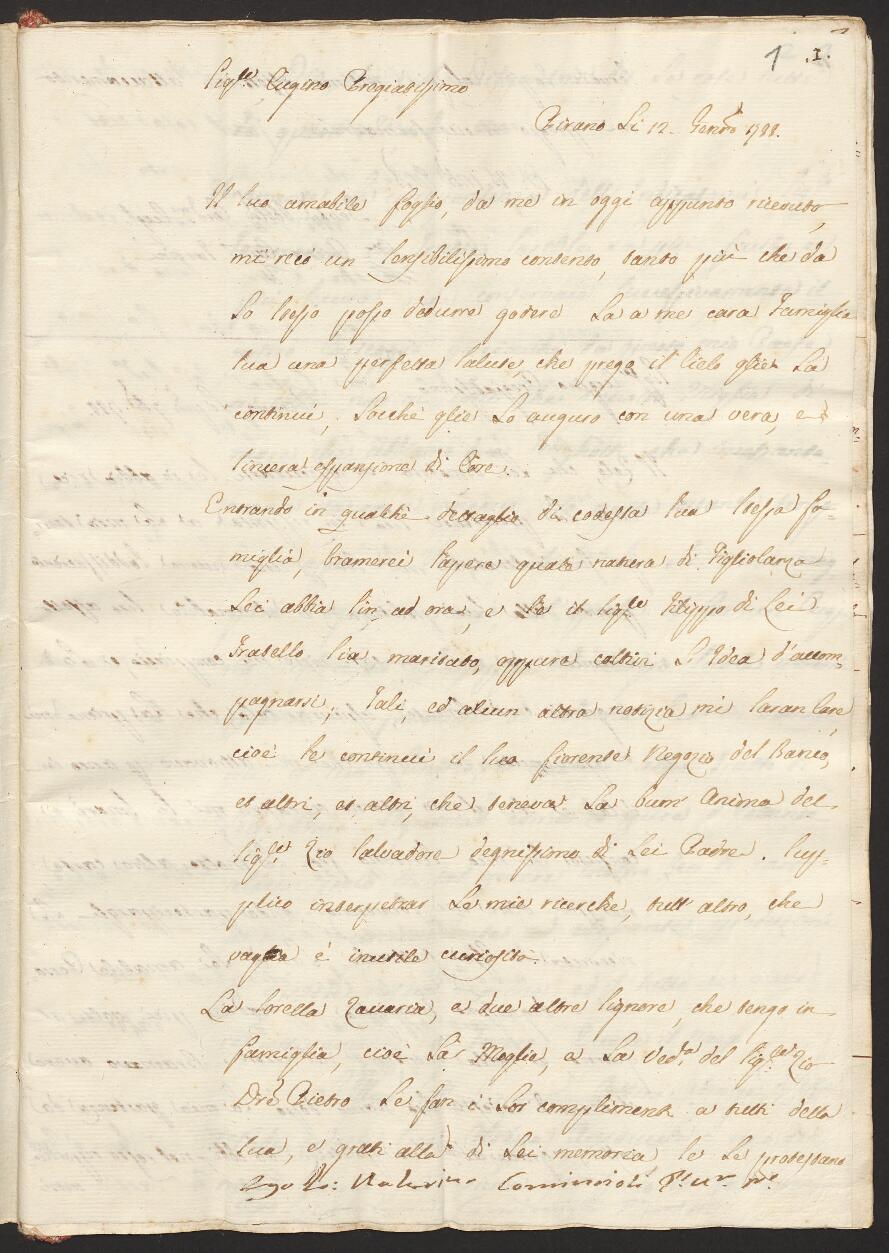 1 .1.
Sig.re Cugino Pregiatissimo
Pirano Li 12. Genro 1788.
Il suo amabile foglio, da me in oggi appunto ricevuto,
mi recò un sensibilissimo contento, tanto più che da
Lo stesso posso dedurre godere La a me cara Famiglia
sua una perfetta salute che prego il Cielo glie La
continui, Locchè glie Lo auguro con una vera, e
sincera espansione di Core.
Entrando in qualche dettaglio di codesta sua stessa fa-
miglia, bramerei sapere quale natura di Figliolanza
Lei abbia sin ad ora, e se il Sig.re Filippo di Lei
Fratello sia maritato, oppure coltivi L'Idea d'accom-
pagnarsi; Tali, ed alcun altra notizia mi saran care,
cioè se continui il suo fiorente Negozio del Banco,
et altri, et altri, che teneva La buon Anima del
Sig.r Zio Salvadore degnissimo di Lei Padre. Sup-
plico interpetrar Le mie ricerche, tutt'altro, che
vaghe è inutile curiosità.
La Sorella Zauaria, e due altre Signore, che tengo in
famiglia, cioè La Moglie, e La Ved.a del Sig.r Zio
Dr Pietro Le fan i Lor complimenti a tutti della
sua, e grati alla di Lei memoria, se Le protestano